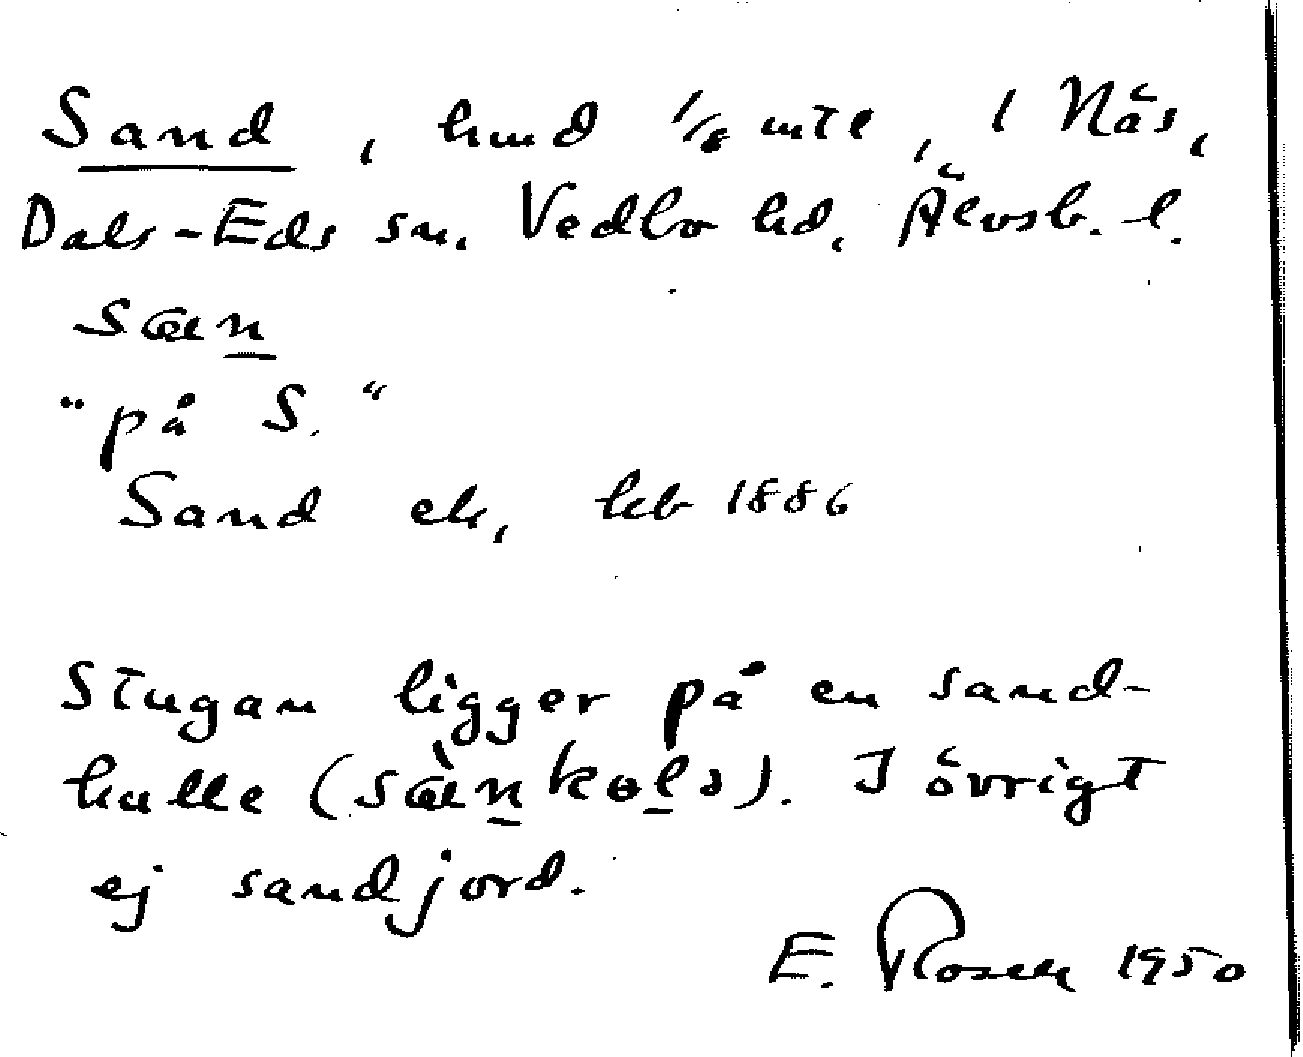 Sand, hmd 1/8 mtl, 1 Näs,
Dals-Eds sn. Vedbo hd, Älvsb. l.
sæn
"på S."
Sand ek, 1886
Stugan ligger på en sand-
kulle (sæ̀nkolə). I övrigt
ej sandjord.
E. Rosell 1950